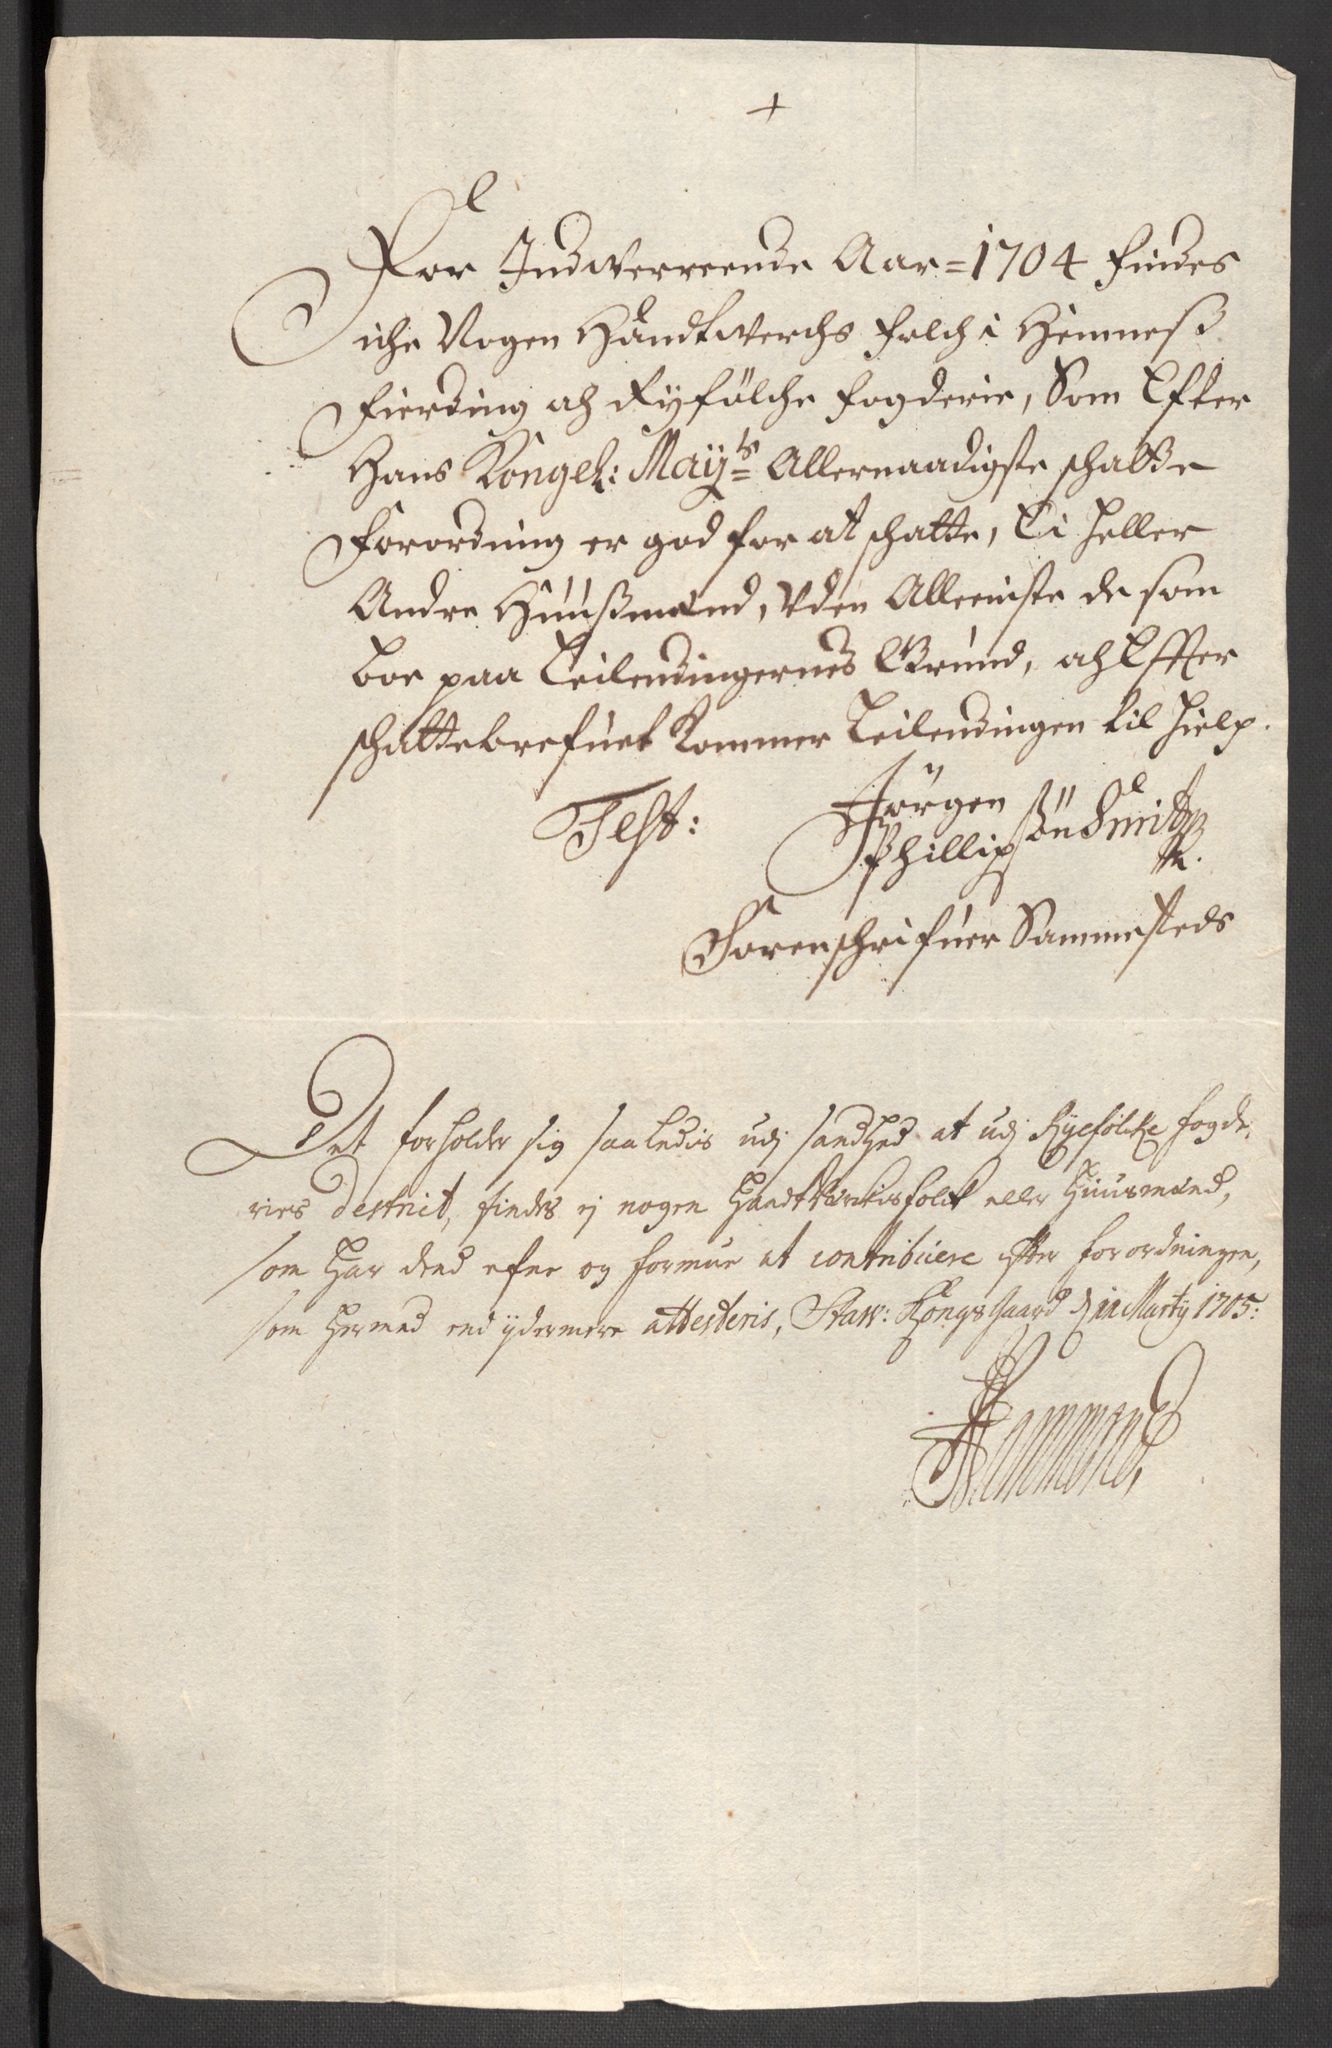 +
For Indwerreende Aar = 1704 findes
iche Nogen Håndtwerchs folch i Hemneß
Fierding af Ryfølche fogderie, Som Efter
Hans Kongel: Mayts Allernaadigste schatte
Forordning er god for at schatte, Ei heller
Andre Huußmænd, Uden Alleeniste de som
boe paa Leilendingernes Grund, och Effter
schattebrefuet kommer Leilendingen til hielp.
Test: Jørgen
Phillipsøn Smitz
Sorenschrifuer Sammesteds
Det forholder sig saaledis udj sandhed at udj Ryefölke fogde-
ries destrict, findes ej nogen Handtverkisfolk eller Huusmænd,
som har dend efne og formue at contribuere efter forordningen,
som hermed end ydermere attesteris, Staw: Kongsgaard d 11 Martij 1705:
Hammond